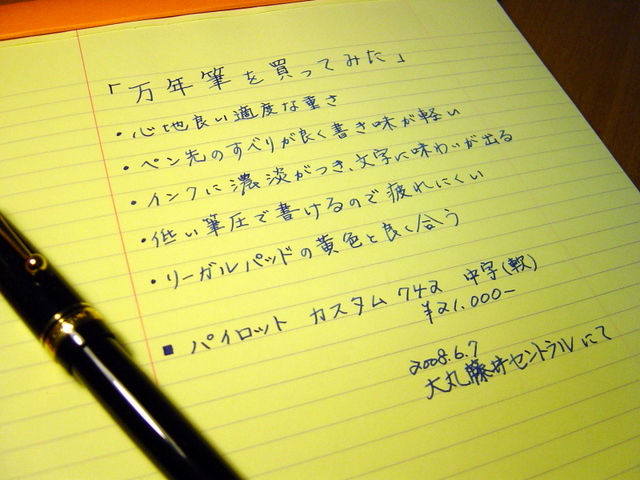 「万年筆を買ってみた」
・心地良い適度な重さ
・ペン先のすべりが良く書き味が軽い
・インクに濃淡がつき、文字に味わいが出る
・低い筆圧で書けるので疲れにくい
・リーガルパッドの黄色と良く合う
■ パイロット カスタム 742 中字(軟)
¥21.000-
2008.6.7
大丸藤井セントラルにて